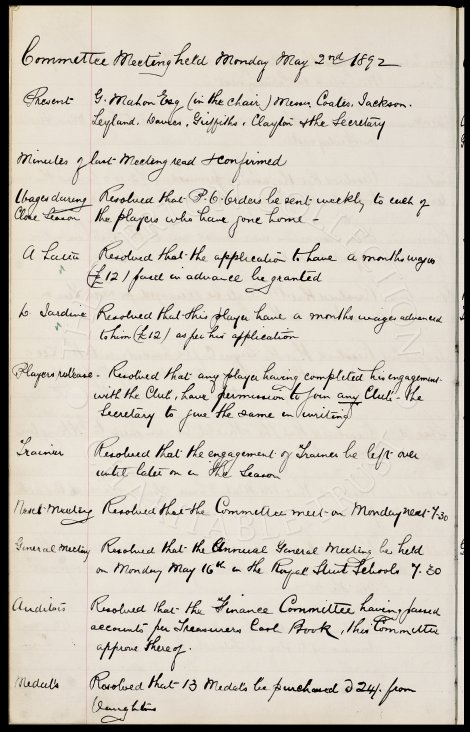 Committee Meeting held Monday May 2nd 1892
Present G. Mahon Esq (in the chair) Messrs Coates, Jackson.
Leyland, Davies, Griffiths, Clayton & the Secretary
Minutes of last Meeting read & confirmed
Wages during Resolved that P.O. Orders be sent weekly to each of
Close Season the players who have gone home -
A Latta Resolved that the application to have a months wages
(£12) paid in advance be granted
D. Jardine Resolved that this player have a months wages advanced
to him (£12) as per his application
Players release - Resolved that any player having completed his engagement
with the Club, have permission to join any Club - the
Secretary to give the same in writing
Trainer Resolved that the engagement of Trainer be left over
until later on in the Season
Next Meeting Resolved that the Committee meet on Monday next 7-30
General Meeting Resolved that the Annual General Meeting be held
on Monday May 16th in the Royal Street Schools 7.30
Auditors Resolved that the Finance Committee having passed
accounts per Treasurers Cash Book, this Committee
approve thereof.
Medals Resolved that 13 Medals be purchased @ 24/- from
Vaughtons